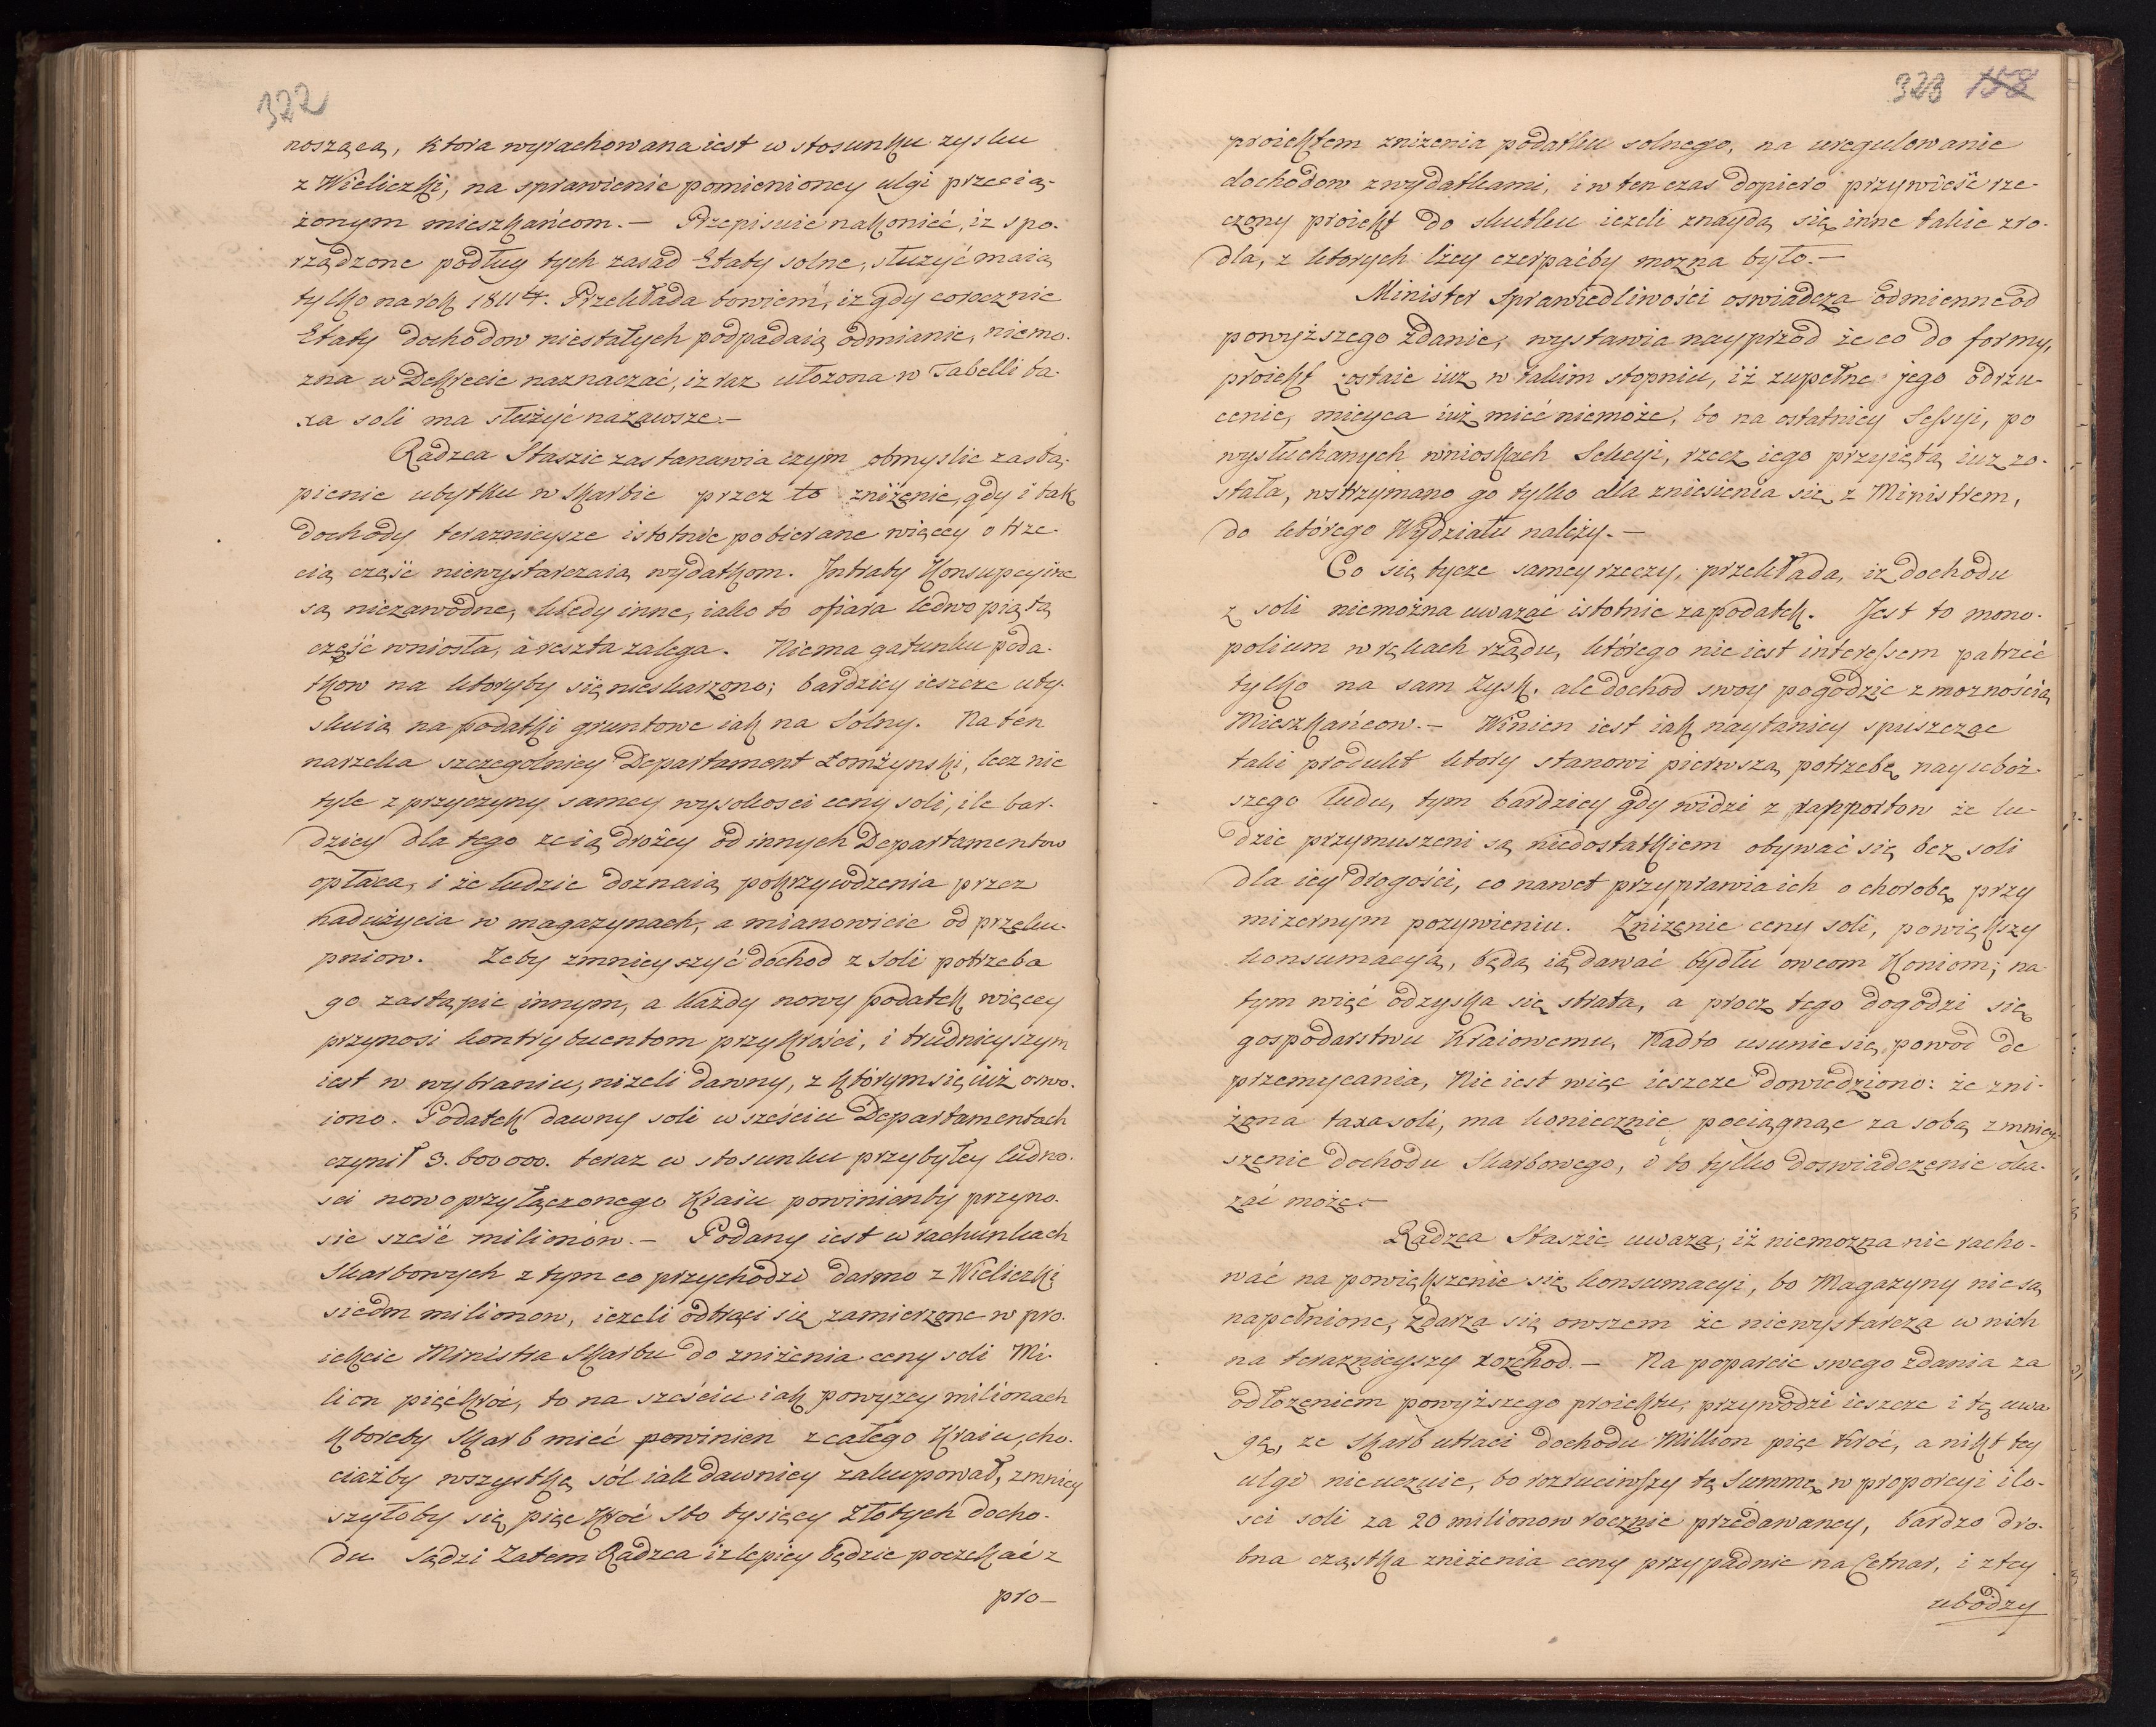 322
noszącą, ktora wyrachowana iest w stosunku zysku
z Wieliczki, na sprawienie pomienioney ulgi przecią-
żonym mieszkańcom. — Przepisuie nakonieć, iz spo-
rządzone podług tych zasad Etaty solne, służyć maią
tylko na rok 1811ty. Przekłada bowiem, iz gdy corocznie
Etaty dochodow niestałych podpadaią odmianie, niemo-
zna w Dekrecie naznaczać, iz raz ułożona w Tabelli ta-
xa soli ma służyć nazawsze. —
Radzca Staszic zastanawia czym obmyslic zastą-
pienie ubytku w Skarbie przez to zniżenie, gdy i tak
dochody teraznieysze istotnie pobierane więcey o trze-
cią część niewystarczaią wydatkom. Intraty Konsupcyine
są niezawodne, kiedy inne, iako to ofiara ledwo piątą
część wniosła, a reszta zalega. Niema gatunku poda-
tkow na ktoryby się nieskarzono; bardziey ieszcze uty-
skuią na podatki gruntowe iak na Solny. Na ten
narzeka szczegolniey Departament Łomżynski, lecz nie
tyle z przyczyny samey wysokosci ceny soli, ile bar-
dziey dla tego ze ią drożey od innych Departamentow
opłaca, i że ludzie doznaią pokrzywdzenia przez
nadużycia w magazynach, a mianowicie od przeku-
pniow. Zeby zmnieyszyć dochod z Soli potrzeba
go zastąpic innym, a każdy nowy podatek więcey
przynosi kontrybuentom przykrości, i trudnieyszym
iest w wybraniu, nizeli dawny, z którym się iuż oswo-
iono. Podatek dawny soli w sześciu Departamentach
czynił 3.600000. teraz w stosunku przybyłey ludno-
sci nowo przyłączonego Kraiu powinienby przyno-
sic sześć milionow. — Podany iest w rachunkach
Skarbowych z tym co przychodzi darmo z Wieliczki
siedm milionow, iezeli odtrąci się zamierzone w pro-
iekcie Ministra Skarbu do zniżenia ceny soli Mi-
lion pięćkroć, to na sześciu iak powyżey milionach
ktoreby Skarb mieć powinien z całego Kraiu, cho-
ciażby wszystkę sól iak dawniey zakupował, zmniey
szyłoby się pięć kroć Sto tysięcy Złotych docho-
du. Sądzi zatem Radzca iz lepiey będzie poczekać z
pro—
323 158
proiektem zniżenia podatku solnego, na uregulowanie
dochodow z wydatkami, i w ten czas dopiero przywieśc rze-
czony proiekt do skutku iezeli znaydą się inne takie zro-
dla, z ktorych lzey czerpaćby mozna było. —
Minister Sprawiedliwości oswiadcza odmienne od
powyższego zdanie, wystawia nayprzod że co do formy,
proiekt zostaie iuz w takim stopniu, iż zupełne jego odrzu-
cenie, mieysca iuż mieć niemoże, bo na ostatniey Sessyi, po
wysłuchanych wnioskach Sekcyi, rzecz iego przyiętą iuz zo-
stała, wstrzymano go tylko dla zniesienia się z Ministrem,
do którego Wydziału należy. —
Co się tycze samey rzeczy, przekłada, iz dochodu
z soli niemożna uwazać istotnie za podatek. Jest to mono-
polium w rękach rządu, którego nie iest interessem patrzeć
tylko na sam zysk. ale dochod swoy pogodzic z moznością
Mieszkańcow. — Winien iest iak naytaniey spuszczac
taki produkt ktory stanowi pierwszą potrzebę nayuboż-
szego ludu, tym bardziey gdy widzi z rapportow że lu-
dzie przymuszeni są niedostatkiem obywać się bez soli
dla iey drogości, co nawet przyprawia ich o chorobę przy
mizernym pozywieniu. Zniżenie ceny soli, powiększy
konsumacyą, będą ią dawać bydłu owcom Koniom; na
tym więć odzyska się strata, a procz tego dogodzi się
gospodarstwu Kraiowemu, Nadto usunie się powod do
przemycania, Nie iest więc ieszcze dowiedziono: że zni-
żona taxa soli, ma koniecznie pociągnąc za sobą zmniey-
szenie dochodu Skarbowego, i to tylko doswiadczenie oka-
zać może. —
Radzca Staszic uwaza, iż niemozna nic racho-
wać na powiększenie się konsumacyi, bo Magazyny nie są
napełnione, zdarza się owszem że niewystarcza w nich
na teraznieyszy rozchod. — Na poparcie swego zdania za
odłozeniem powyższego proiektu, przywodzi ieszcze i tę uwa
gę, ze Skarb utraci dochodu Million pięc kroć, a nikt tey
ulgi nie uczuie, bo rozruciwszy tę Summę w proporcyi ilo-
sci soli za 20 milionow rocznie przedawaney, bardzo dro-
bna cząstka zniżenia ceny przypadnie na Cetnar, i z tey
ubodzy